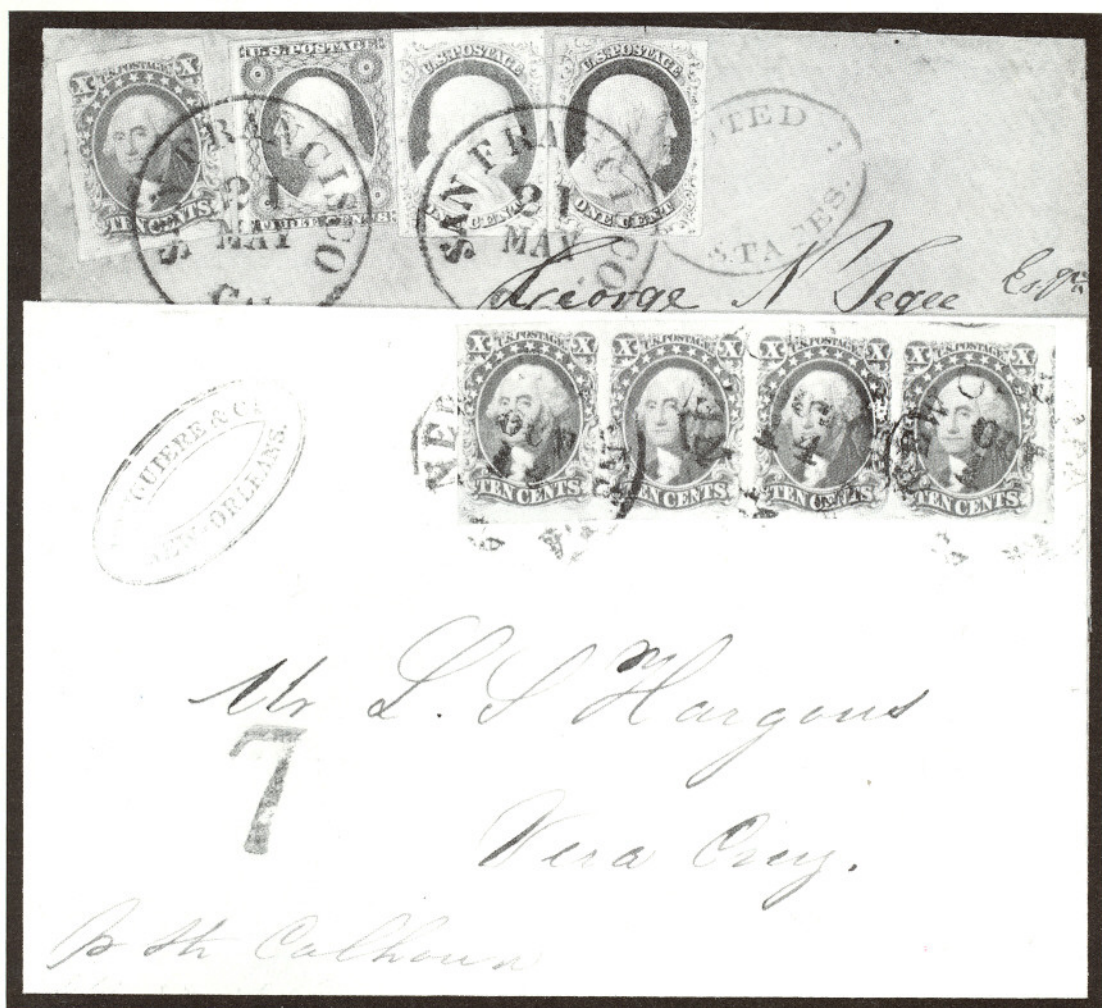 X U.S. POSTAGE X
TEN CENTS
U.S. POSTAGE
THREE CENTS
U.S. POSTAGE
ONE CENT
U.S. POSTAGE
ONE CENT
SAN FRANCISCO
21
MAY
SAN FRANCISCO
21
MAY
STATES.
George N Segee Esqr
X U.S. POSTAGE X
TEN CENTS
X U.S. POSTAGE X
TEN CENTS
X U.S. POSTAGE X
TEN CENTS
X U.S. POSTAGE X
TEN CENTS
GUIERE & C
NEW-ORLEANS.
Mr L. S Hargous
7
Vera Cruz.
p Str Calhoun